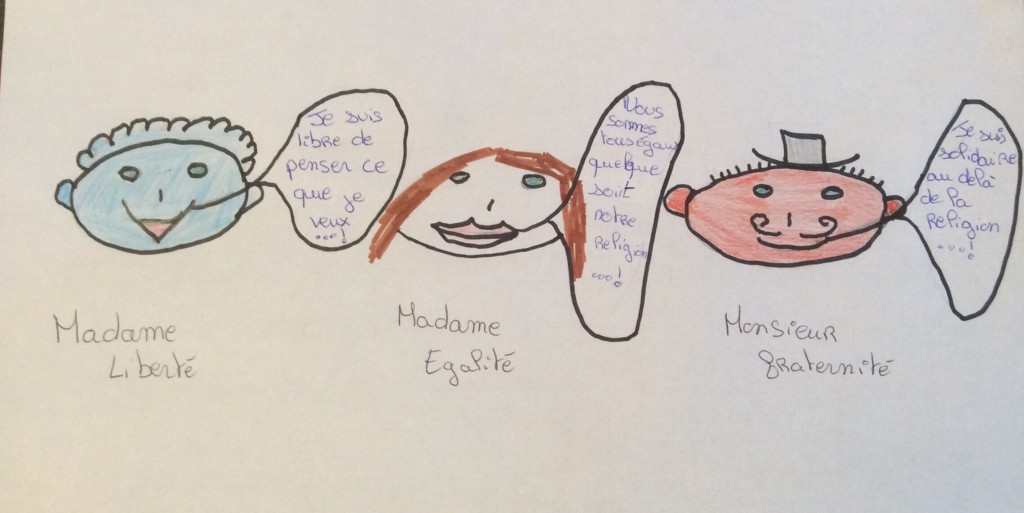 Je suis
libre de
penser ce
que je
veux
...!
Nous
sommes
tous égaux
quelque
soit
notre
religion
...!
Je suis
solidaire
au delà
de la
religion
...!
Madame
Liberté
Madame
Egalité
Monsieur
fraternité